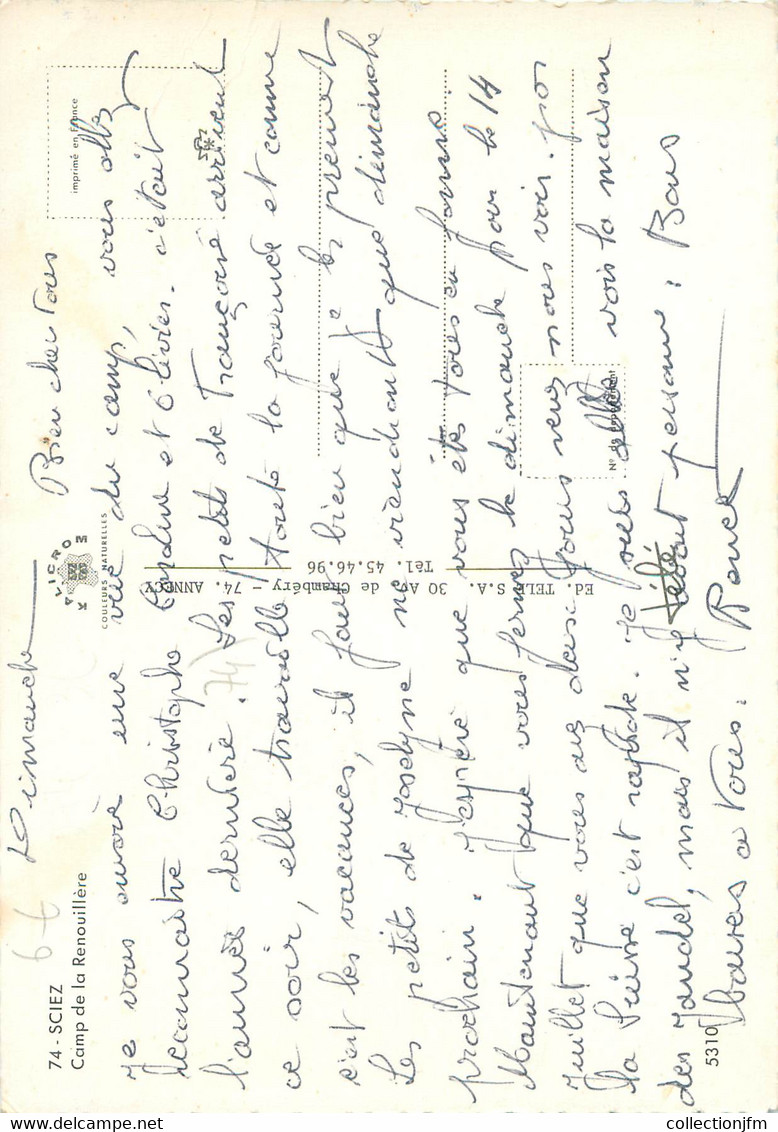 74 - SCIEZ
Camp de la Renouillère
6-6
VICROM
COULEURS NATURELLES
imprimé en France
Dimanche
Bien cher tous
Je vous envoie une vue du camp, vous allez
reconnaître Christophe et Olivier. c'était
l'année dernière. Les petits de Françoise arrivent
ce soir, elle travaille toute la journée et comme
c'est les vacances, il faut bien que je les prenne
Les petits de Joselyne ne viendront que dimanche
prochain. J'espère que vous êtes tous en forme.
Maintenant que vous fermez le dimanche pour le 14
Juillet que vous ayez donc venez nous voir. par
la Suisse c'est rapide. Je suis allée voir la maison
des mais il n'y personne. Bons
baisers a tous.
74
Ed. TELE S.A. 30 Av. de Chambéry - 74. ANNECY
Tél. 45.46.96
N° de département
5310
collectionjfm